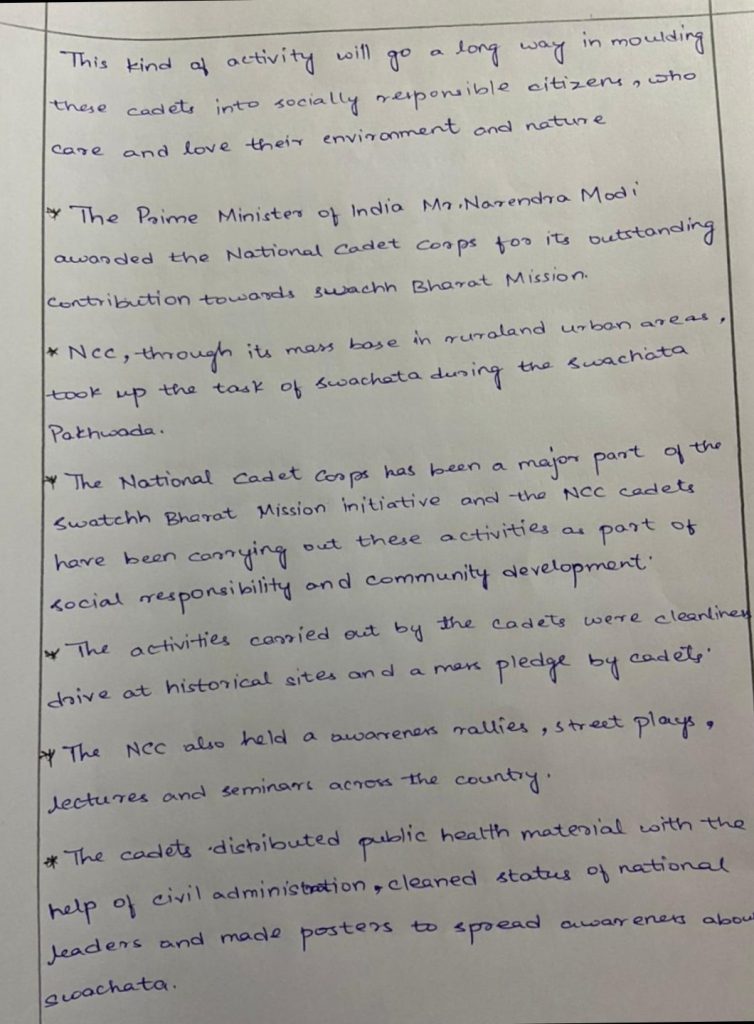 This kind of activity will go a long way in moulding
these cadets into socially responsible citizens, who
care and love their environment and nature
* The Prime Minister of India Mr. Narendra Modi
awarded the National Cadet Corps for its outstanding
contribution towards swachh Bharat Mission.
* NCC, through its mass base in ruraland urban areas,
took up the task of swachata during the swachata
Pakhwada.
* The National Cadet Corps has been a major part of the
swatchh Bharat Mission initiative and the NCC cadets
have been carrying out these activities as part of
social responsibility and community development.
* The activities carried out by the cadets were cleanliness
drive at historical sites and a mass pledge by cadets.
* The NCC also held a awareness rallies, street plays,
lectures and seminars across the country.
* The cadets distributed public health material with the
help of civil administration, cleaned status of national
leaders and made posters to spread awareness about
swachata.